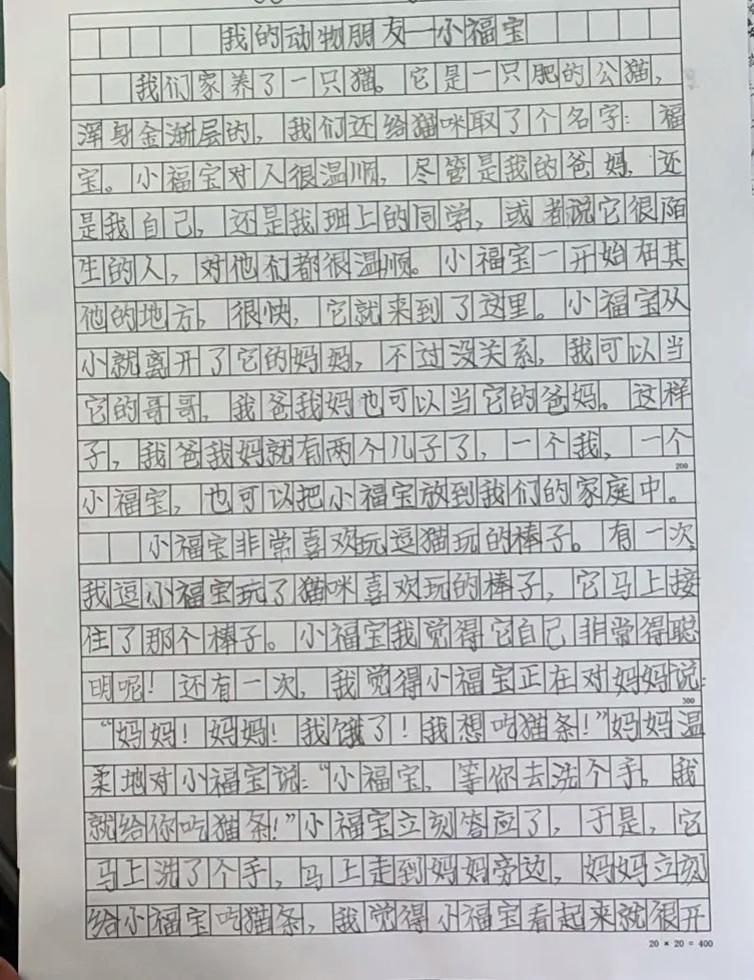 我的动物朋友—小福宝
我们家养了一只猫。它是一只肥的公猫，
浑身金渐层的，我们还给猫咪取了个名字：福
宝。小福宝对人很温顺，尽管是我的爸妈，还
是我自己，还是我班上的同学，或者说它很陌
生的人，对他们都很温顺。小福宝一开始在其
他的地方，很快，它就来到了这里。小福宝从
小就离开了它的妈妈，不过没关系，我可以当
它的哥哥，我爸我妈也可以当它的爸妈。这样
子，我爸我妈就有两个儿子了，一个我，一个
200
小福宝，也可以把小福宝放到我们的家庭中。
小福宝非常喜欢玩逗猫玩的棒子。有一次，
我逗小福宝玩了猫咪喜欢玩的棒子，它马上接
住了那个棒子。小福宝我觉得它自己非常得聪
明呢！还有一次，我觉得小福宝正在对妈妈说：
300
“妈妈！妈妈！我饿了！我想吃猫条！”妈妈温
柔地对小福宝说：“小福宝，等你去洗个手，我
就给你吃猫条！”小福宝立刻答应了，于是，它
马上洗了个手，马上走到妈妈旁边，妈妈立刻
给小福宝吃猫条，我觉得小福宝看起来就很开
20 × 20 = 400